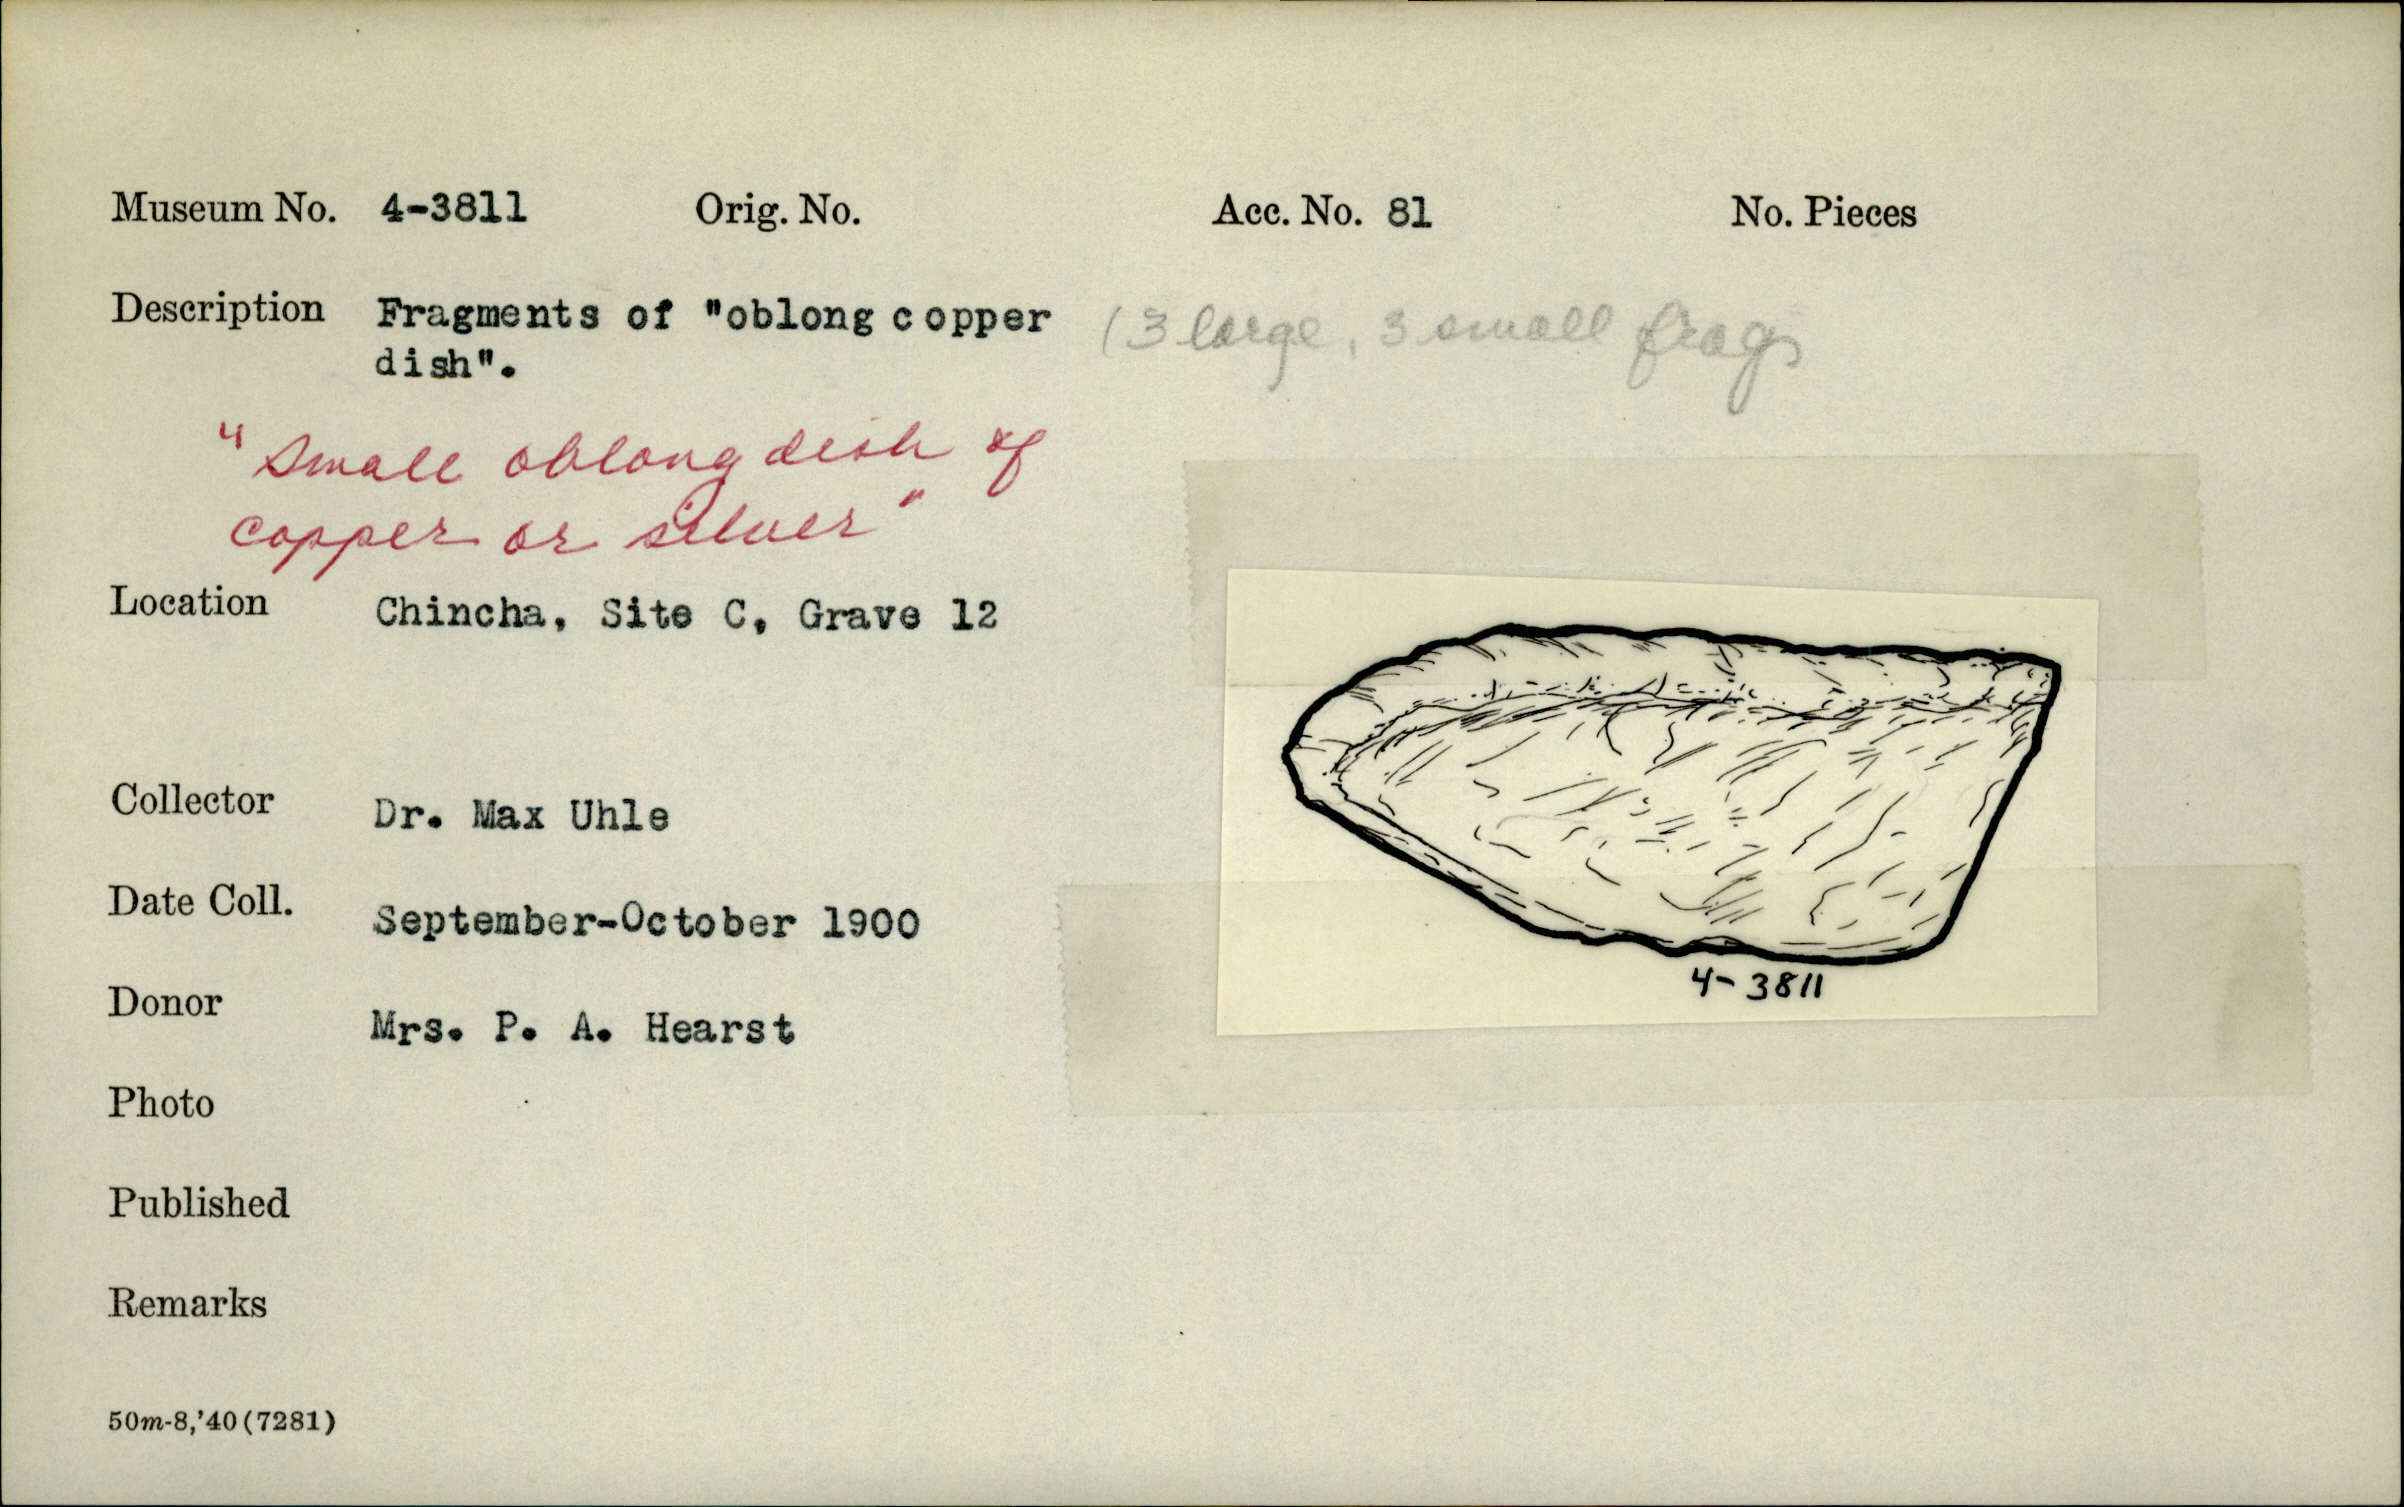 Museum No. 4-3811 Orig. No. Acc. No. 81 No. Pieces
Description Fragments of "oblong copper (3 large, 3 small frags
dish".
"Small oblong dish of
copper or silver"
Location Chincha, Site C, Grave 12
Collector Dr. Max Uhle
Date Coll. September-October 1900
4-3811
Donor Mrs. P. A. Hearst
Photo
Published
Remarks
50m-8,'40(7281)